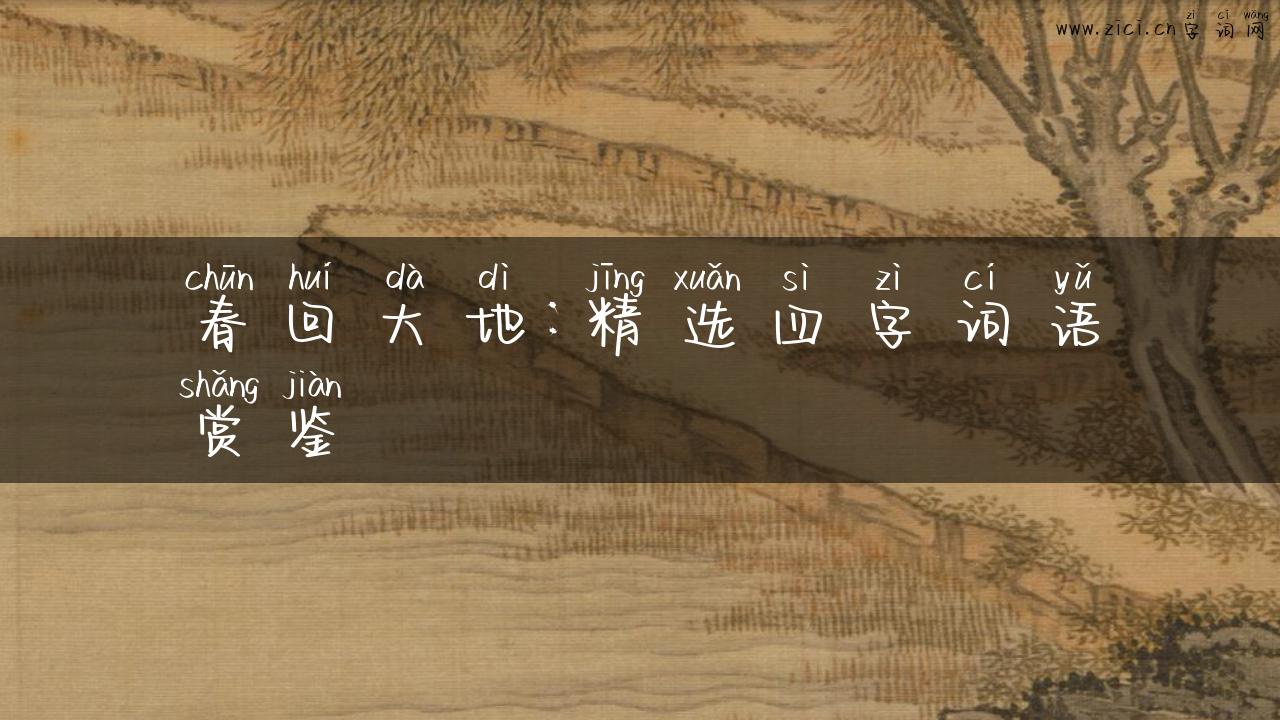 zì cí wǎng
www.zici.cn字词网
chūn huí dà dì jīng xuǎn sì zì cí yǔ
春回大地:精选四字词语
shǎng jiàn
赏鉴